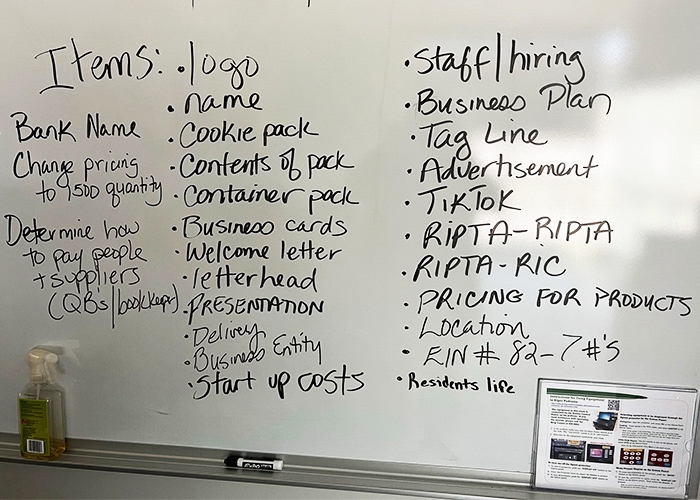 Items:
Bank Name
Change pricing
to 1500 quantity
Determine how
to pay people
+ suppliers
(QBs/bookkeeper)
• logo
• name
• Cookie pack
• Contents of pack
• Container pack
• Business cards
• Welcome letter
• letterhead
• PRESENTATION
• Delivery
• Business Entity
• Start up costs
• Staff/hiring
• Business Plan
• Tag Line
• Advertisement
• TikTok
• RIPTA-RIPTA
• RIPTA-RIC
• PRICING FOR PRODUCTS
• Location
• EIN # 82-7#'s
• Residents life
EXPO